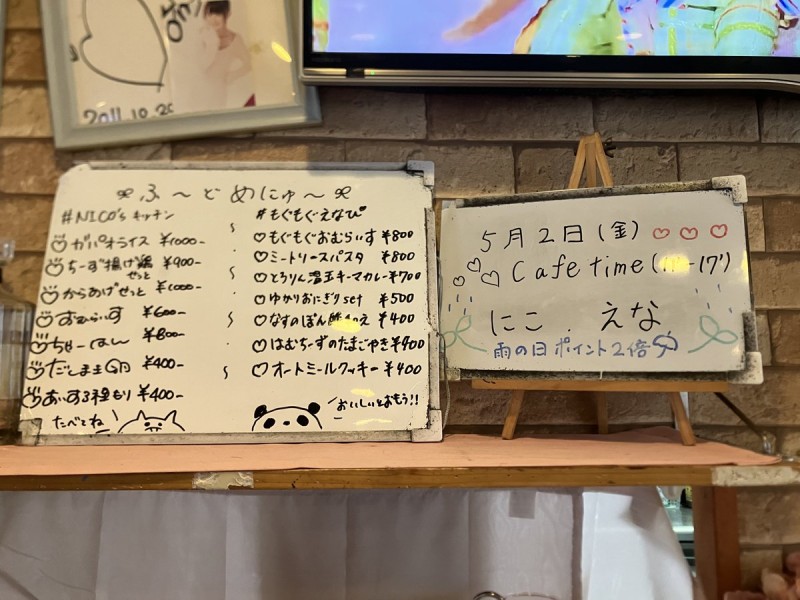 2011.10.20
ふ〜どめにゅ〜
#NICO'sキッチン
ガパオライス ¥1000-
ちーず揚げ鶏せっと ¥900-
からあげせっと ¥1000-
おむらいす ¥600-
ちゃーはん ¥800-
だしまき ¥400-
あいす3種もり ¥400-
たべてね
#もぐもぐえなぴ
もぐもぐおむらいす ¥800
ミートソースパスタ ¥800
とろりん温玉キーマカレー ¥700
ゆかりおにぎりset ¥500
なすのぽん酢 ¥400
はむちーずのたまごやき ¥400
オートミールクッキー ¥400
おいしいとおもう!!
5月2日(金)
Cafe time (11'-17')
にこ . えな
雨の日ポイント2倍